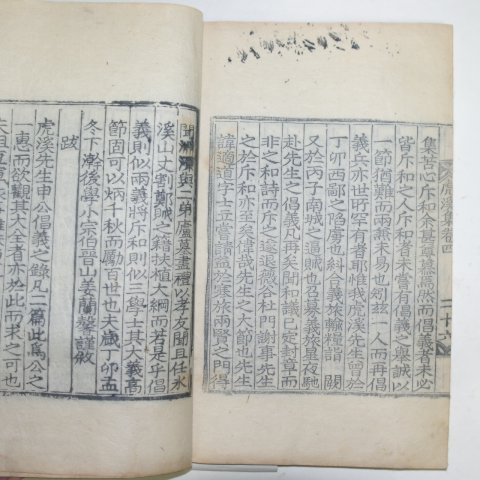 虎溪集卷四 二十六
集苦心斥和余甚尊慕焉然而倡義者未必
皆斥和之人斥和者未嘗有倡義之擧誠以
一節猶難而兩兼未易也矧玆一人而再倡
義兵亦世所罕有者耶惟我虎溪先生曾於
丁卯西鄙之陷虜也糾合義旅輸糧詣 闕
又於丙子南城之逼賊也召募義旅星夜馳
赴先生之倡義凡再矣聞講議已定封章而
非之和詩而斥之遂退薇谷杜門謝事先生
之於斥和亦至矣哉先生之大節也先生
諱適道字士立嘗請益於寒旅兩賢之門得
聞淵源與二弟廬墓盡禮以孝友聞且任永
溪山丈割鄭誠之籍扶植大綱而若是乎倡
義則似兩義將斥和則似三學士其大義高
節固可以炳千秋而勵百世也夫歲丁卯孟
冬下澣後學小宗伯晉山姜蘭馨謹敘
跋
虎溪先生申公倡義之錄凡二篇此爲公之
一惠而欲觀其大全者亦於此而求之可也